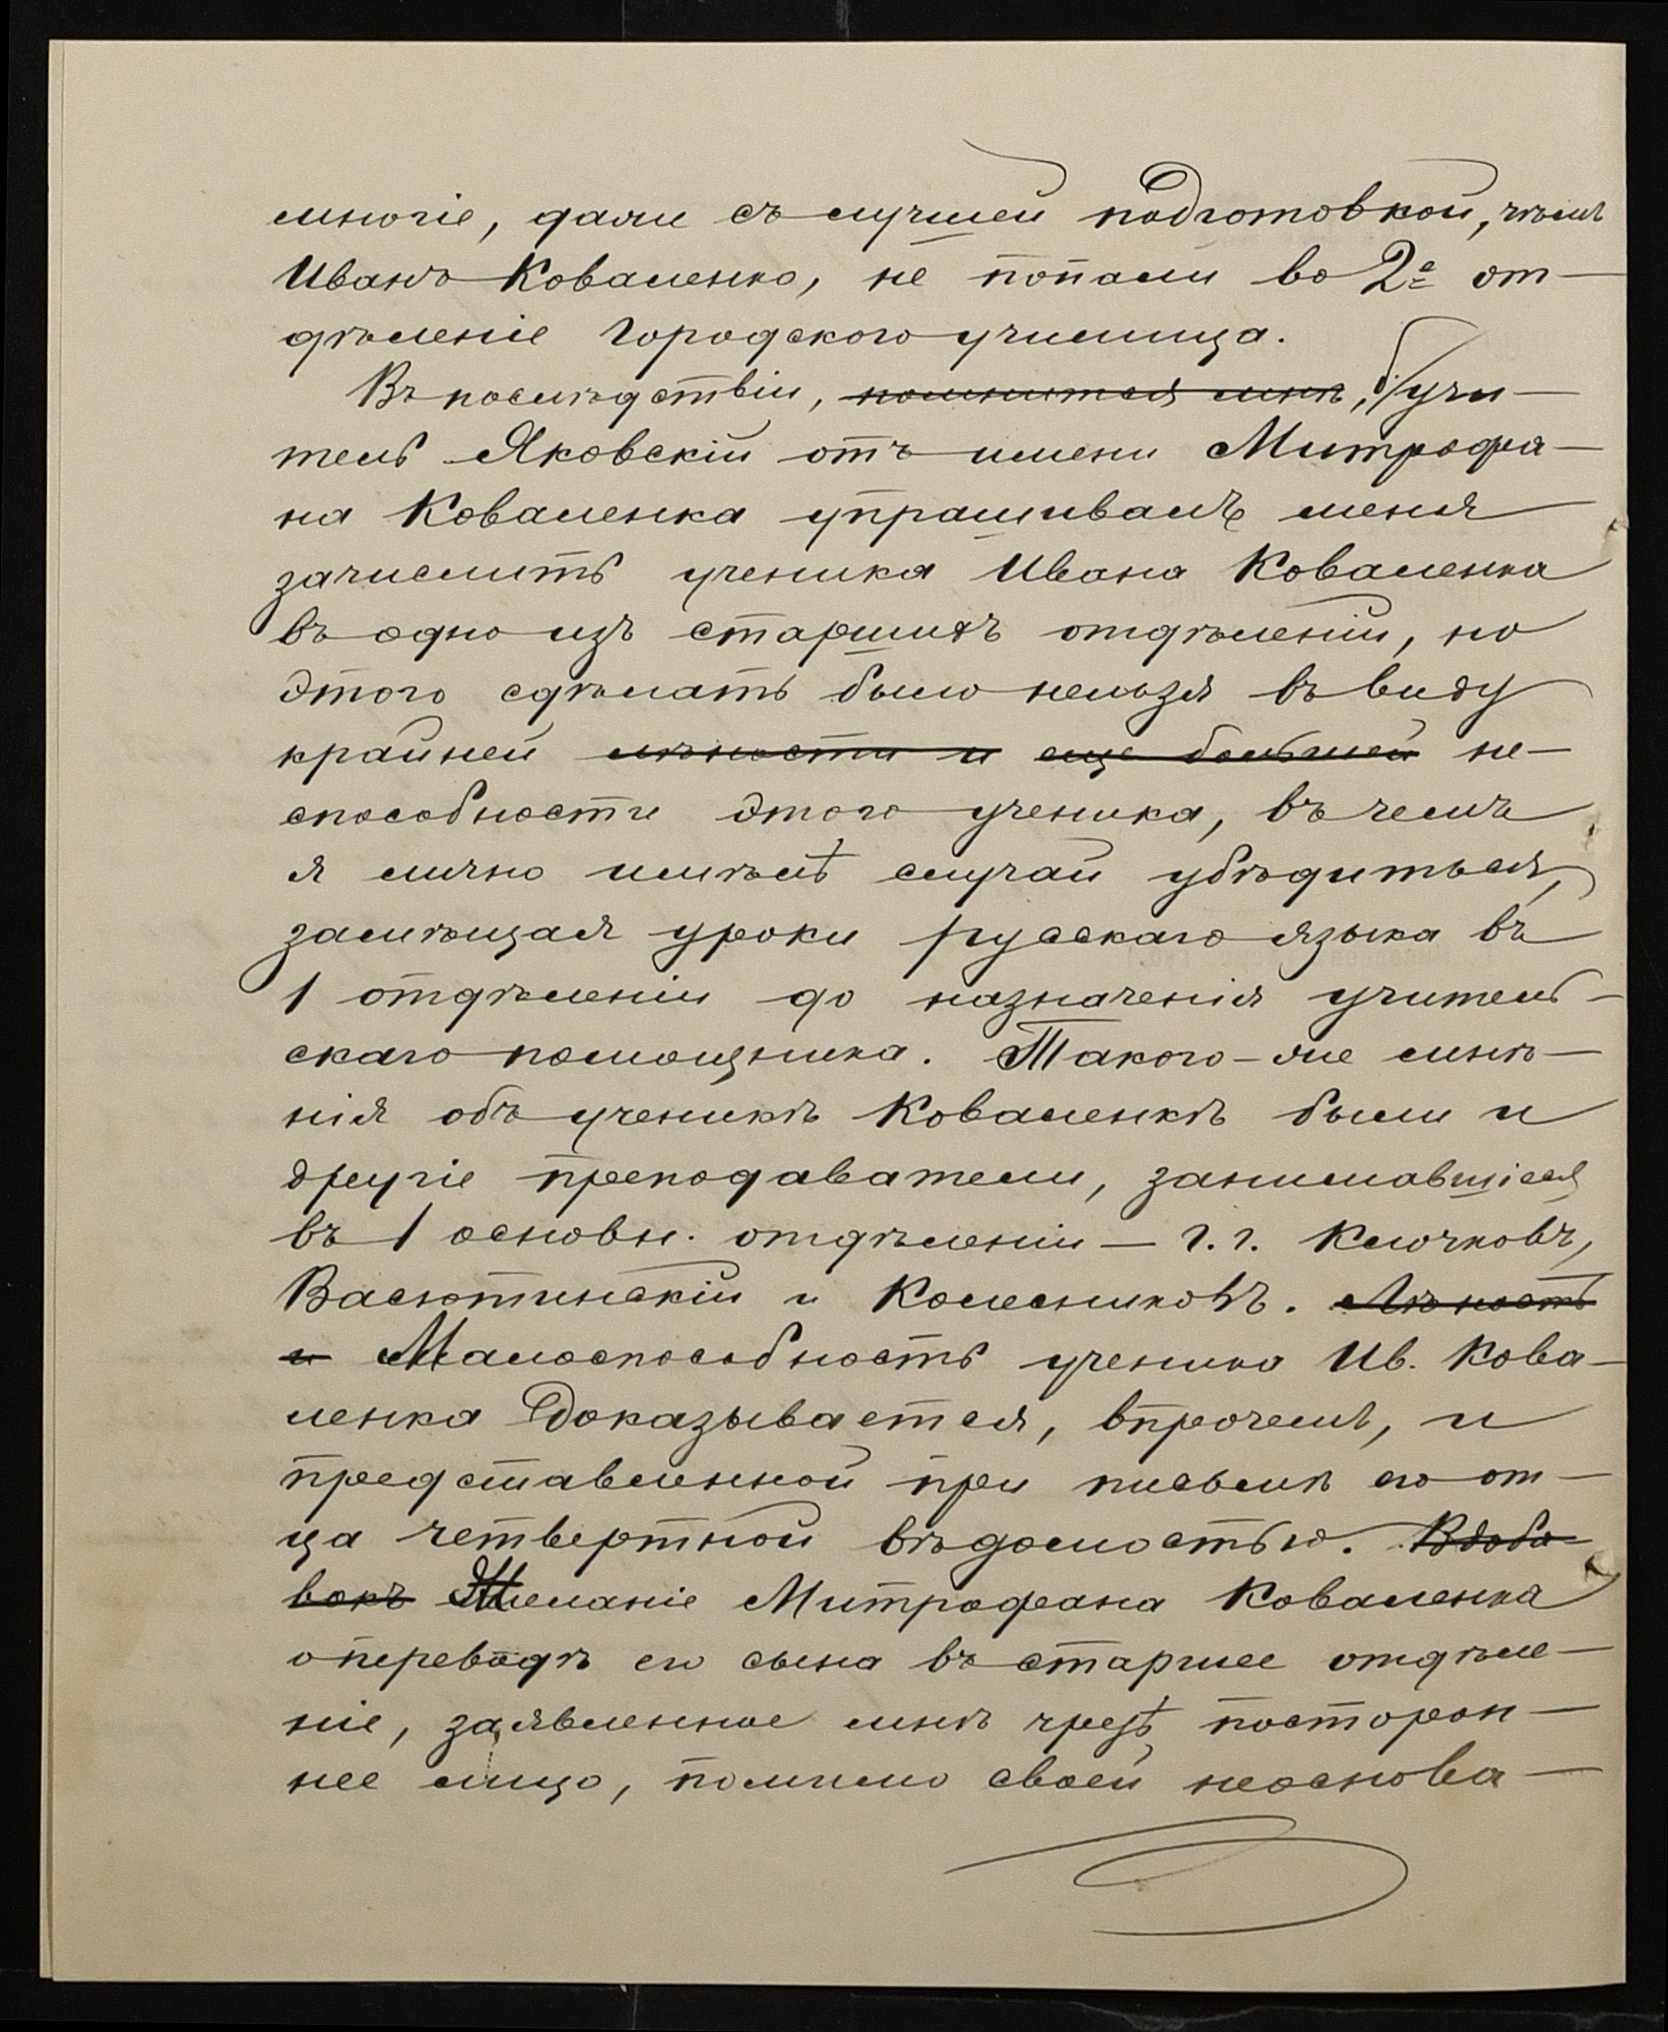 многіе, даже съ лучшей подготовкой, чѣмъ
Иванъ Коваленко, не попали во 2е от-
дѣленіе Городского училища.
Въ послѣдствіи, помнится мнѣ, б/учи-
тель Яковскій отъ имени Митрофа-
на Коваленка упрашивалъ меня
зачислить ученика Ивана Коваленка
въ одно изъ старшихъ отдѣленій, но
этого сдѣлать было нельзя въ виду
крайней лѣности и еще большей не-
способности этого ученика, въ чемъ
я лично имѣлъ случай убѣдиться,
замѣщая уроки русскаго языка въ
1 отдѣленіи до назначенія учитель-
скаго помощника. Такого-же мнѣ-
нія объ ученикѣ Коваленкѣ были и
другіе преподаватели, занимавшіеся
въ 1 основн. отдѣленіи — г.г. Клочковъ,
Васютинскій и Колесниковъ. Лѣность
и Малоспособность ученика Ив. Кова-
ленка доказывается, впрочемъ, и
представленной при письмѣ его от-
ца четвертной вѣдомостью. Вдоба-
вокъ Желаніе Митрофана Коваленка
о переводѣ его сына въ старшее отдѣле-
ніе, заявленное мнѣ чрезъ посторон-
нее лицо, помимо своей неоснова-